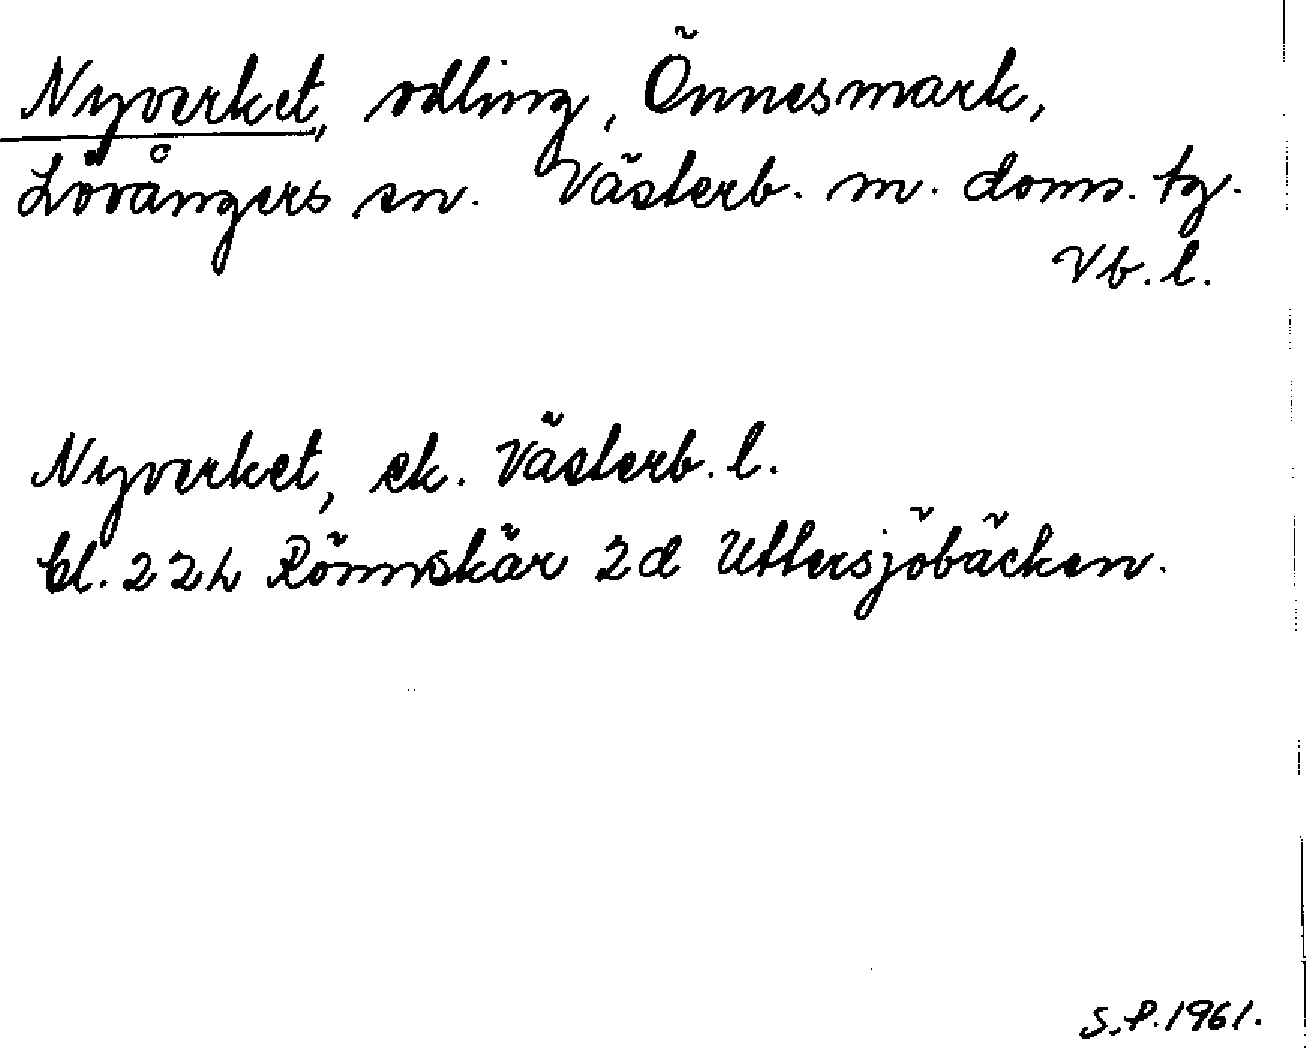 Nyverket, odling, Önnesmark,
Lövångers sn. Västerb. m. doms. tg.
Vb. l.
Nyverket, ek. Västerb. l.
bl. 22L Rönnskär 2d Uttersjöbäcken.
S.P. 1961.